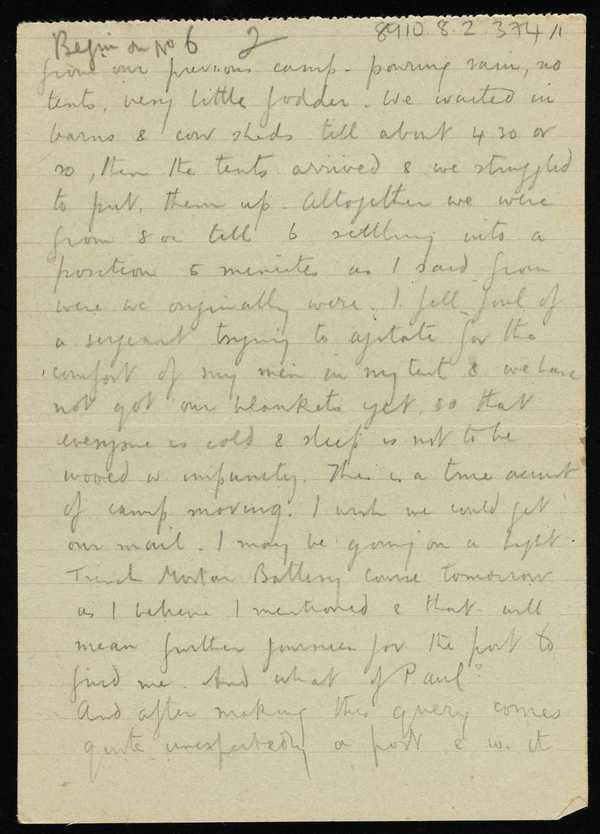 Begin on No 6 2 8910.8.2.374/1
from our previous camp - pouring rain, no
tents, very little fodder. We waited in
barns & cow sheds till about 4 30 or
so, then the tents arrived & we struggled
to put them up. Altogether we were
from 8 or till 6 settling into a
position 5 minutes as I said from
were we originally were. I fell foul of
a sergeant trying to agitate for the
comfort of my men in my tent & we have
not got our blankets yet, so that
everyone is cold & sleep is not to be
wooed w impunity. This is a true account
of camp moving. I wish we could get
our mail. I may be going on a Light
Trench Mortar Battery course tomorrow
as I believe I mentioned & that will
mean further journeies for the post to
find me. And what of Paul?
And after making this query comes
quite unexpectedly a post & w. it